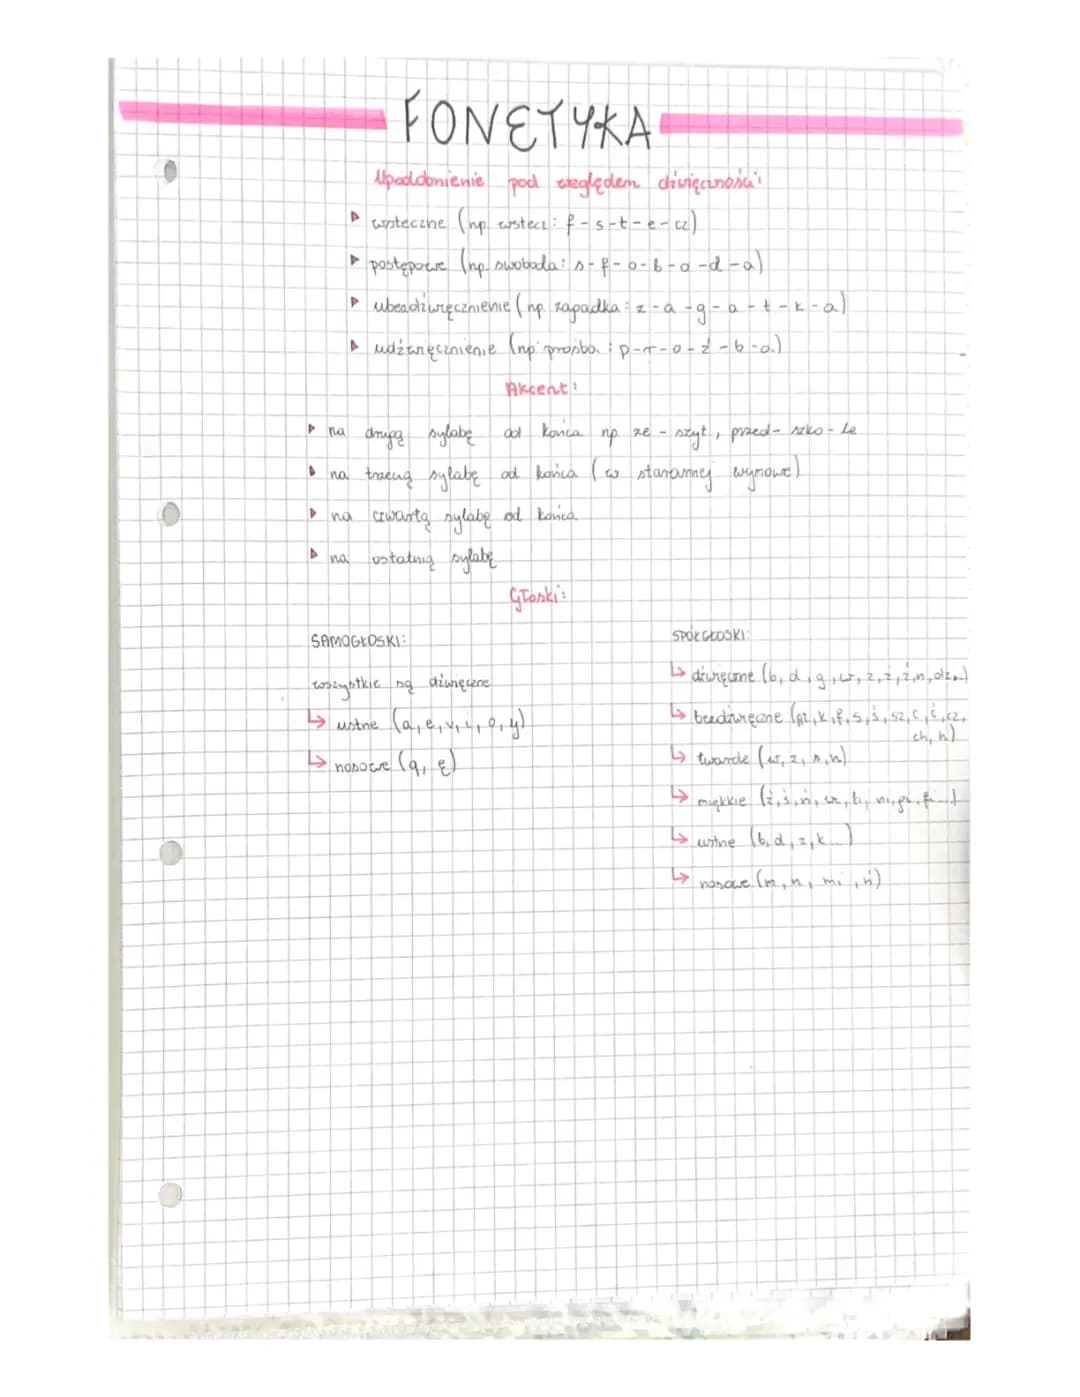 FONETYKA
Upodobnienie pod względem dźwięczności:
▶ wsteczne (np. wstecz: f-s-t-e-cz)
▶ postępowe (np. swoboda: s-f-o-b-o-d-a)
▶ ubezdźwięcznienie (np zagadka: z-a-g-a-t-k-a)
▶ udźwięcznienie (np prośba: p-r-o-ź-b-a)
Akcent:
▶ na drugą sylabę od końca np ze-szyt, przed-szko-le
▶ na trzecią sylabę od końca (w starannej wymowie)
▶ na czwartą sylabę od końca
▶ na ostatnią sylabę
Głoski:
SAMOGŁOSKI:
wszystkie są dźwięczne
↳ ustne (a, e, u, i, o, y)
↳ nosowe (ą, ę)
SPÓŁGŁOSKI:
↳ dźwięczne (b, d, g, w, z, ż, ź, n, dz...)
↳ bezdźwięczne (p, t, k, f, s, ś, sz, c, ć, cz,
ch, h)
↳ twarde (w, z, s, n)
↳ miękkie (ź, ś, ń, bi, mi, gi, fi...)
↳ ustne (b, d, z, k...)
↳ nosowe (m, n, mi, ń)